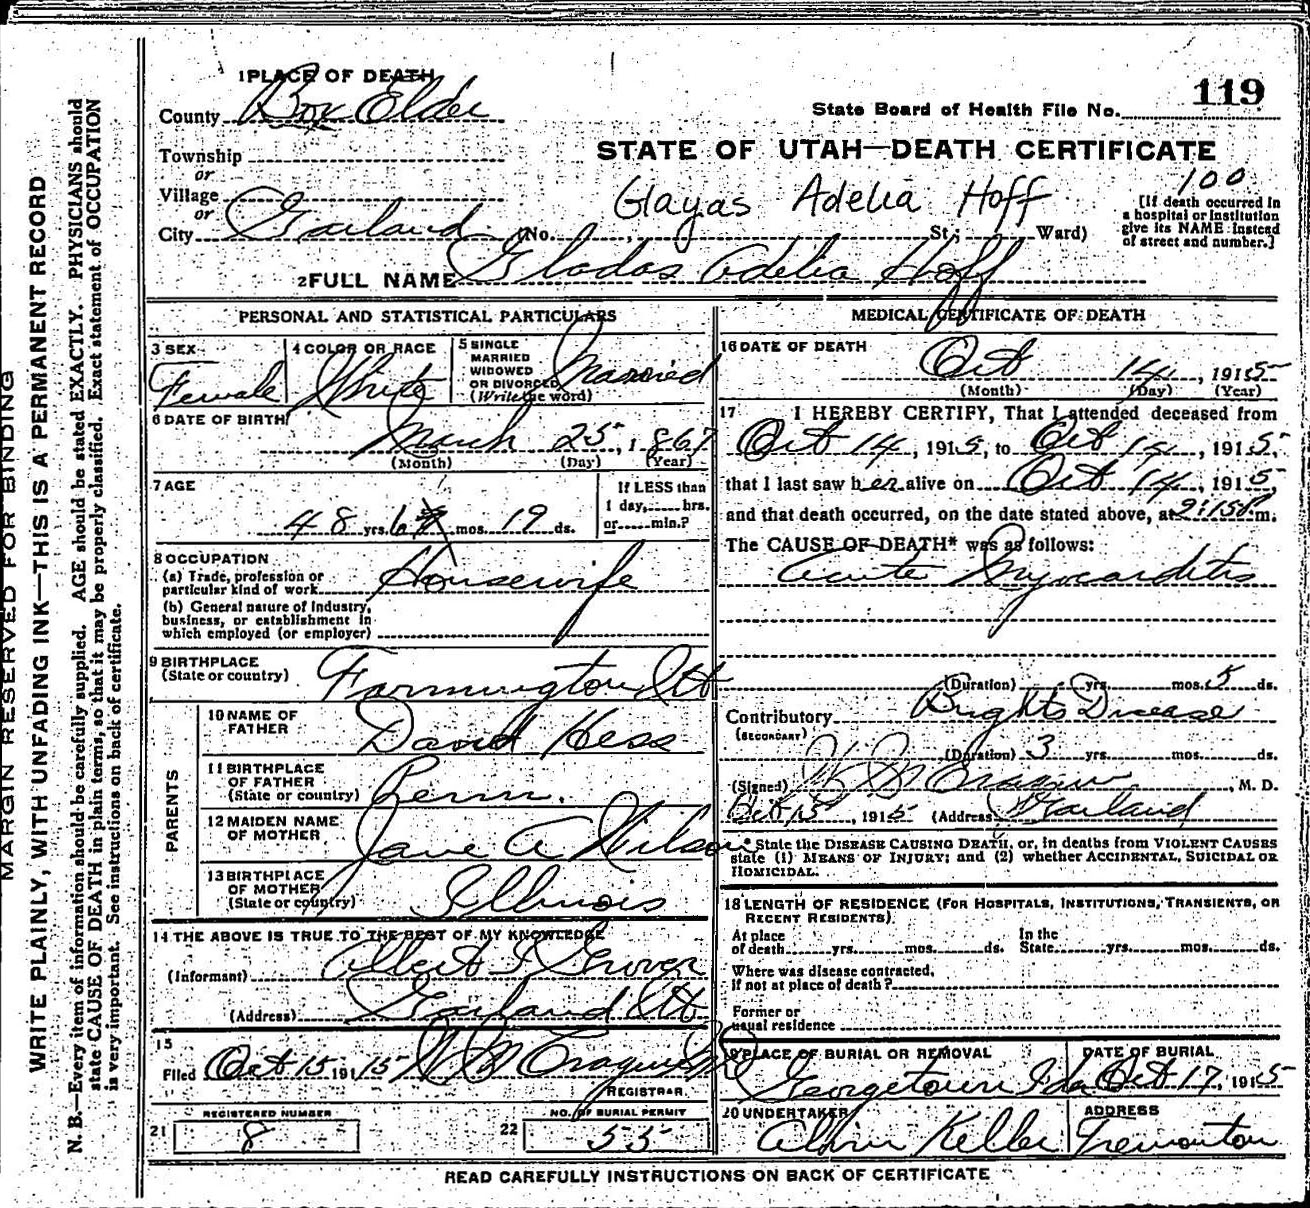 MARGIN RESERVED FOR BINDING
WRITE PLAINLY, WITH UNFADING INK—THIS IS A PERMANENT RECORD
N. B.—Every item of information should be carefully supplied. AGE should be stated EXACTLY. PHYSICIANS should
state CAUSE OF DEATH in plain terms, so that it may be properly classified. Exact statement of OCCUPATION
is very important. See instructions on back of certificate.
1 PLACE OF DEATH
County Box Elder
Township
or
Village
or
City Garland
State Board of Health File No. 119
STATE OF UTAH—DEATH CERTIFICATE
Glayas Adelia Hoff
100
(No. St.; Ward)
[If death occurred in
a hospital or institution
give its NAME instead
of street and number.]
2 FULL NAME Gladas Adelia Hoff
PERSONAL AND STATISTICAL PARTICULARS
3 SEX
Female
4 COLOR OR RACE
White
5 SINGLE
MARRIED
WIDOWED
OR DIVORCED
(Write the word)
Married
6 DATE OF BIRTH
March 25, 1867
(Month) (Day) (Year)
7 AGE
48 yrs. 6 mos. 19 ds.
If LESS than
1 day, hrs.
or min.?
8 OCCUPATION
(a) Trade, profession or
particular kind of work Housewife
(b) General nature of Industry,
business, or establishment in
which employed (or employer)
9 BIRTHPLACE
(State or country) Farmington Ut
PARENTS
10 NAME OF
FATHER David Hess
11 BIRTHPLACE
OF FATHER
(State or country) Penn.
12 MAIDEN NAME
OF MOTHER Jane A Wilson
13 BIRTHPLACE
OF MOTHER
(State or country) Illinois
14 THE ABOVE IS TRUE TO THE BEST OF MY KNOWLEDGE
(Informant) Albert Grover
(Address) Garland Ut
15
Filed Oct 15 1915
REGISTRAR
REGISTERED NUMBER
21 8
NO. OF BURIAL PERMIT
22 55
MEDICAL CERTIFICATE OF DEATH
16 DATE OF DEATH
Oct 14, 1915
(Month) (Day) (Year)
17 I HEREBY CERTIFY, That I attended deceased from
Oct 14, 1915, to Oct 14, 1915,
that I last saw her alive on Oct 14, 1915,
and that death occurred, on the date stated above, at 9:15P m.
The CAUSE OF DEATH* was as follows:
Acute Myocarditis
(Duration) yrs. mos. 5 ds.
Contributory Brights Disease
(SECONDARY)
(Duration) 3 yrs. mos. ds.
(Signed) , M. D.
Oct 15, 1915 (Address) Garland
* State the DISEASE CAUSING DEATH, or, in deaths from VIOLENT CAUSES
state (1) MEANS OF INJURY; and (2) whether ACCIDENTAL, SUICIDAL OR
HOMICIDAL.
18 LENGTH OF RESIDENCE (FOR HOSPITALS, INSTITUTIONS, TRANSIENTS, OR
RECENT RESIDENTS)
At place
of death yrs. mos. ds.
In the
State yrs. mos. ds.
Where was disease contracted,
if not at place of death?
Former or
usual residence
19 PLACE OF BURIAL OR REMOVAL
Georgetown Ida
DATE OF BURIAL
Oct 17, 1915
20 UNDERTAKER
Alvin Keller
ADDRESS
Tremonton
READ CAREFULLY INSTRUCTIONS ON BACK OF CERTIFICATE